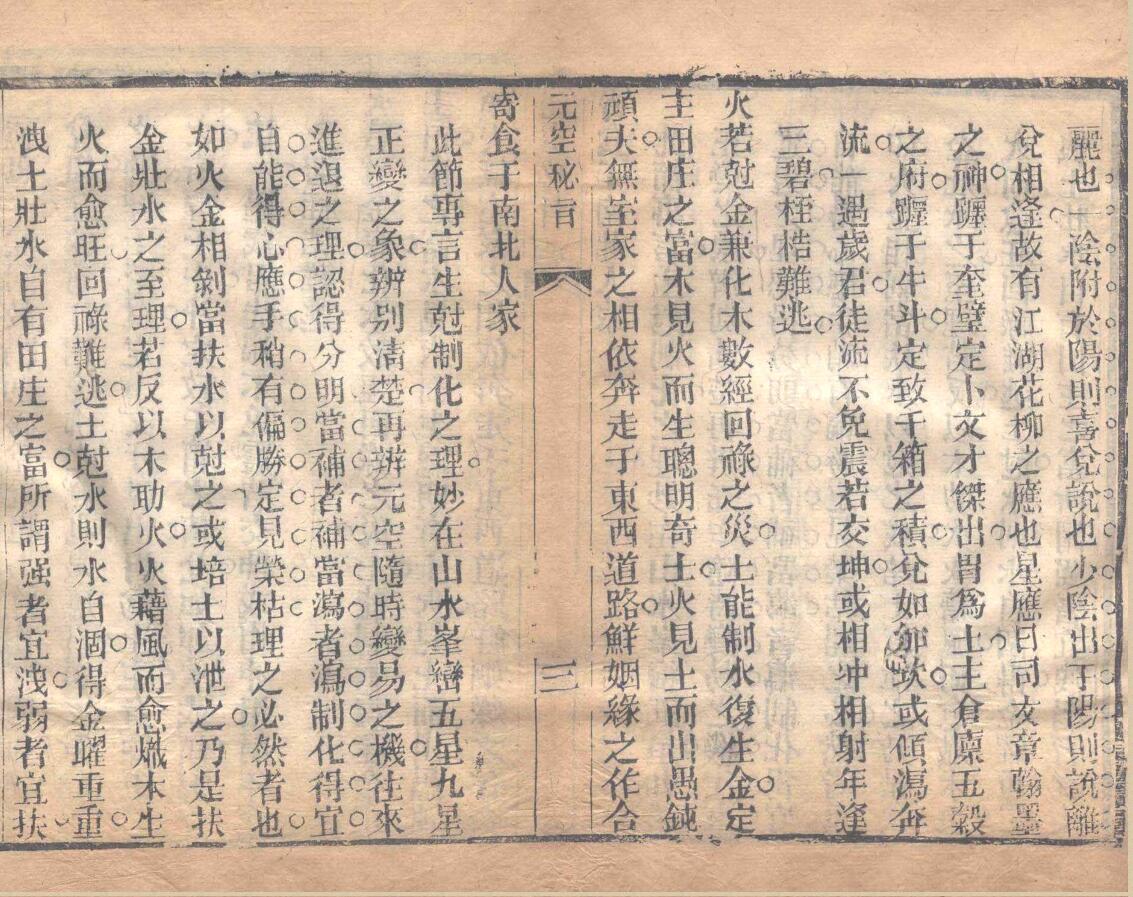 麗也一陰附於陽則喜兌說也少陰出于陽則說離
兌相逢故有江湖花柳之應也星應曰司文章翰墨
之神躔于奎璧定卜文才傑出胃爲土主倉廩五穀
之府躔于牛斗定致千箱之積兌如卯坎或傾瀉奔
流一遇歲君徒流不免震若交坤或相冲相射年逢
三碧桎梏難逃
火若尅金兼化木數經回祿之災土能制水復生金定
主田庄之富木見火而生聰明奇士火見土而出愚鈍
頑夫無室家之相依奔走于東西道路鮮姻緣之作合
元空秘旨
三
寄食于南北人家
此節專言生尅制化之理妙在山水峯巒五星九星
正變之象辨別清楚再辨元空隨時變易之機往來
進退之理認得分明當補者補當瀉者瀉制化得宜
自能得心應手稍有偏勝定見榮枯理之必然者也
如火金相剝當扶水以尅之或培土以泄之乃是扶
金壯水之至理若反以木助火火藉風而愈熾本生
火而愈旺回祿難逃土尅水則水自涸得金曜重重
洩土壯水自有田庄之富所謂强者宜洩弱者宜扶